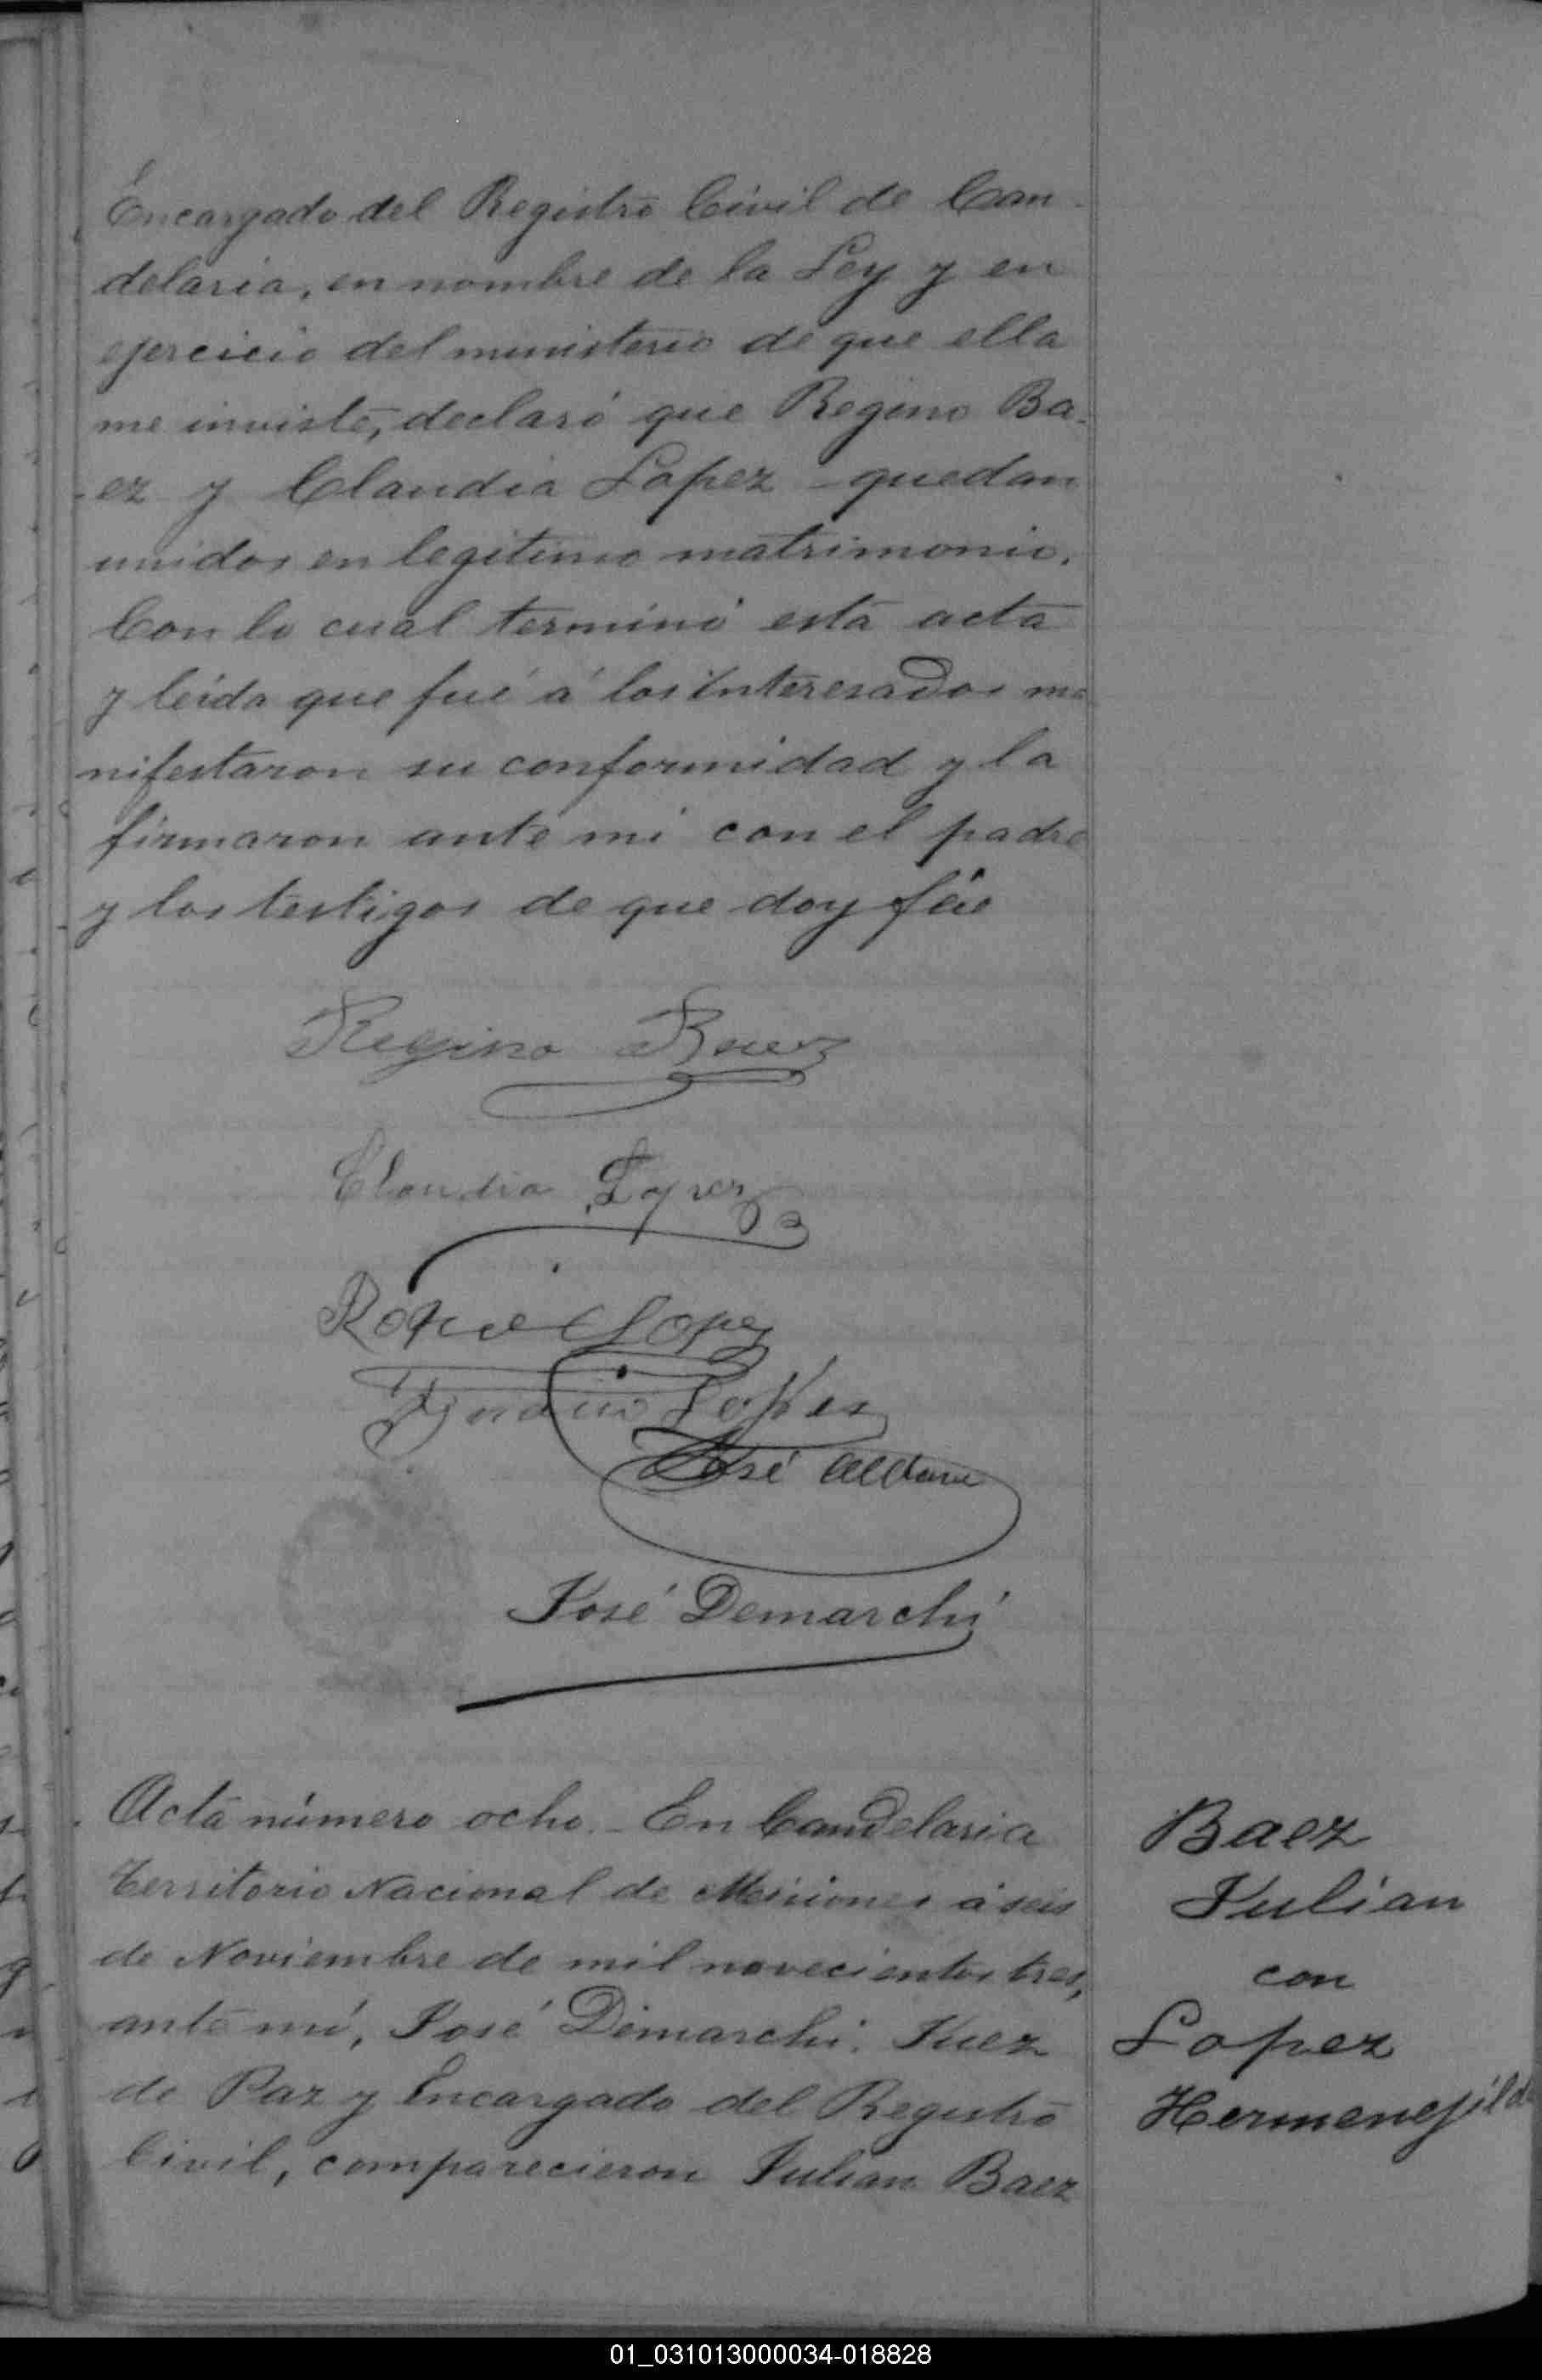 Encargado del Registro Civil de Can-
delaria, en nombre de la Ley y en
ejercicio del ministerio de que ella
me inviste, declaró que Regino Ba-
ez y Claudia Lopez - quedan
unidos en legitimo matrimonio.
Con lo cual terminó esta acta
y leida que fué á los interesados ma
nifestaron su conformidad y la
firmaron ante mi con el padre
y los testigos de que doy fée
Regino Baez
Claudia Lopez
Roque Lopez
Lopez
José
José Demarchi
Acta número ocho. - En Candelaria
Territorio Nacional de Misiones á seis
de Noviembre de mil novecientos tres,
ante mí, José Demarchi, Juez
de Paz y Encargado del Registro
Civil, comparecieron Julian Baez
Baez
Julian
con
Lopez
Hermenejilda
01_031013000034-018828